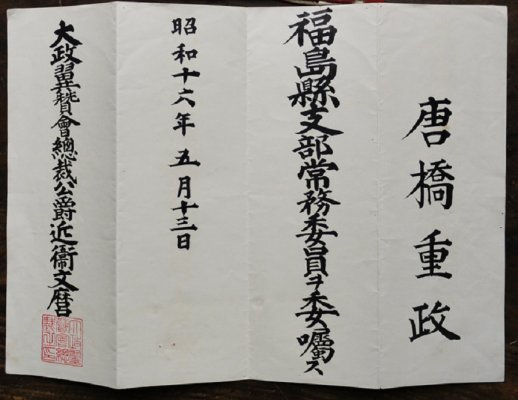 唐橋重政
福島縣支部常務委員ヲ委囑ス
昭和十六年五月十三日
大政翼賛會總裁公爵近衞文麿